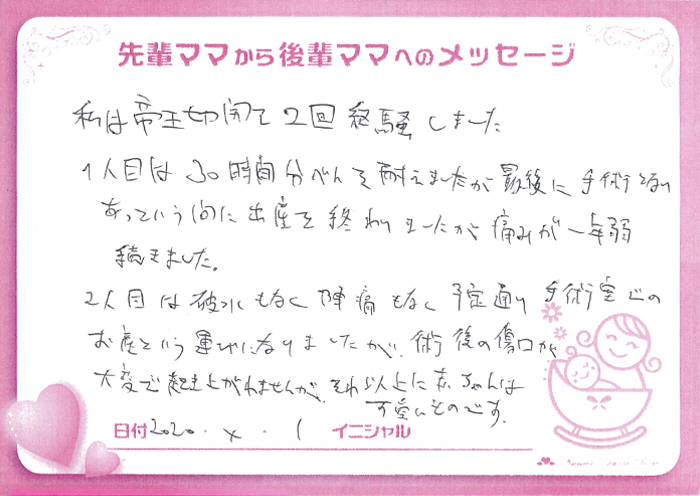 先輩ママから後輩ママへのメッセージ
私は帝王切開で2回経験しました
1人目は30時間分べんを耐えましたが最後に手術となり
あっという間に出産を終わりましたが痛みが一年弱
続きました。
2人目は破水もなく陣痛もなく予定通り手術室での
お産という運びになりましたが、術後の傷口が
大変で起き上がれませんが、それ以上に赤ちゃんは
可愛いものです。
日付 2020. x . 1 イニシャル